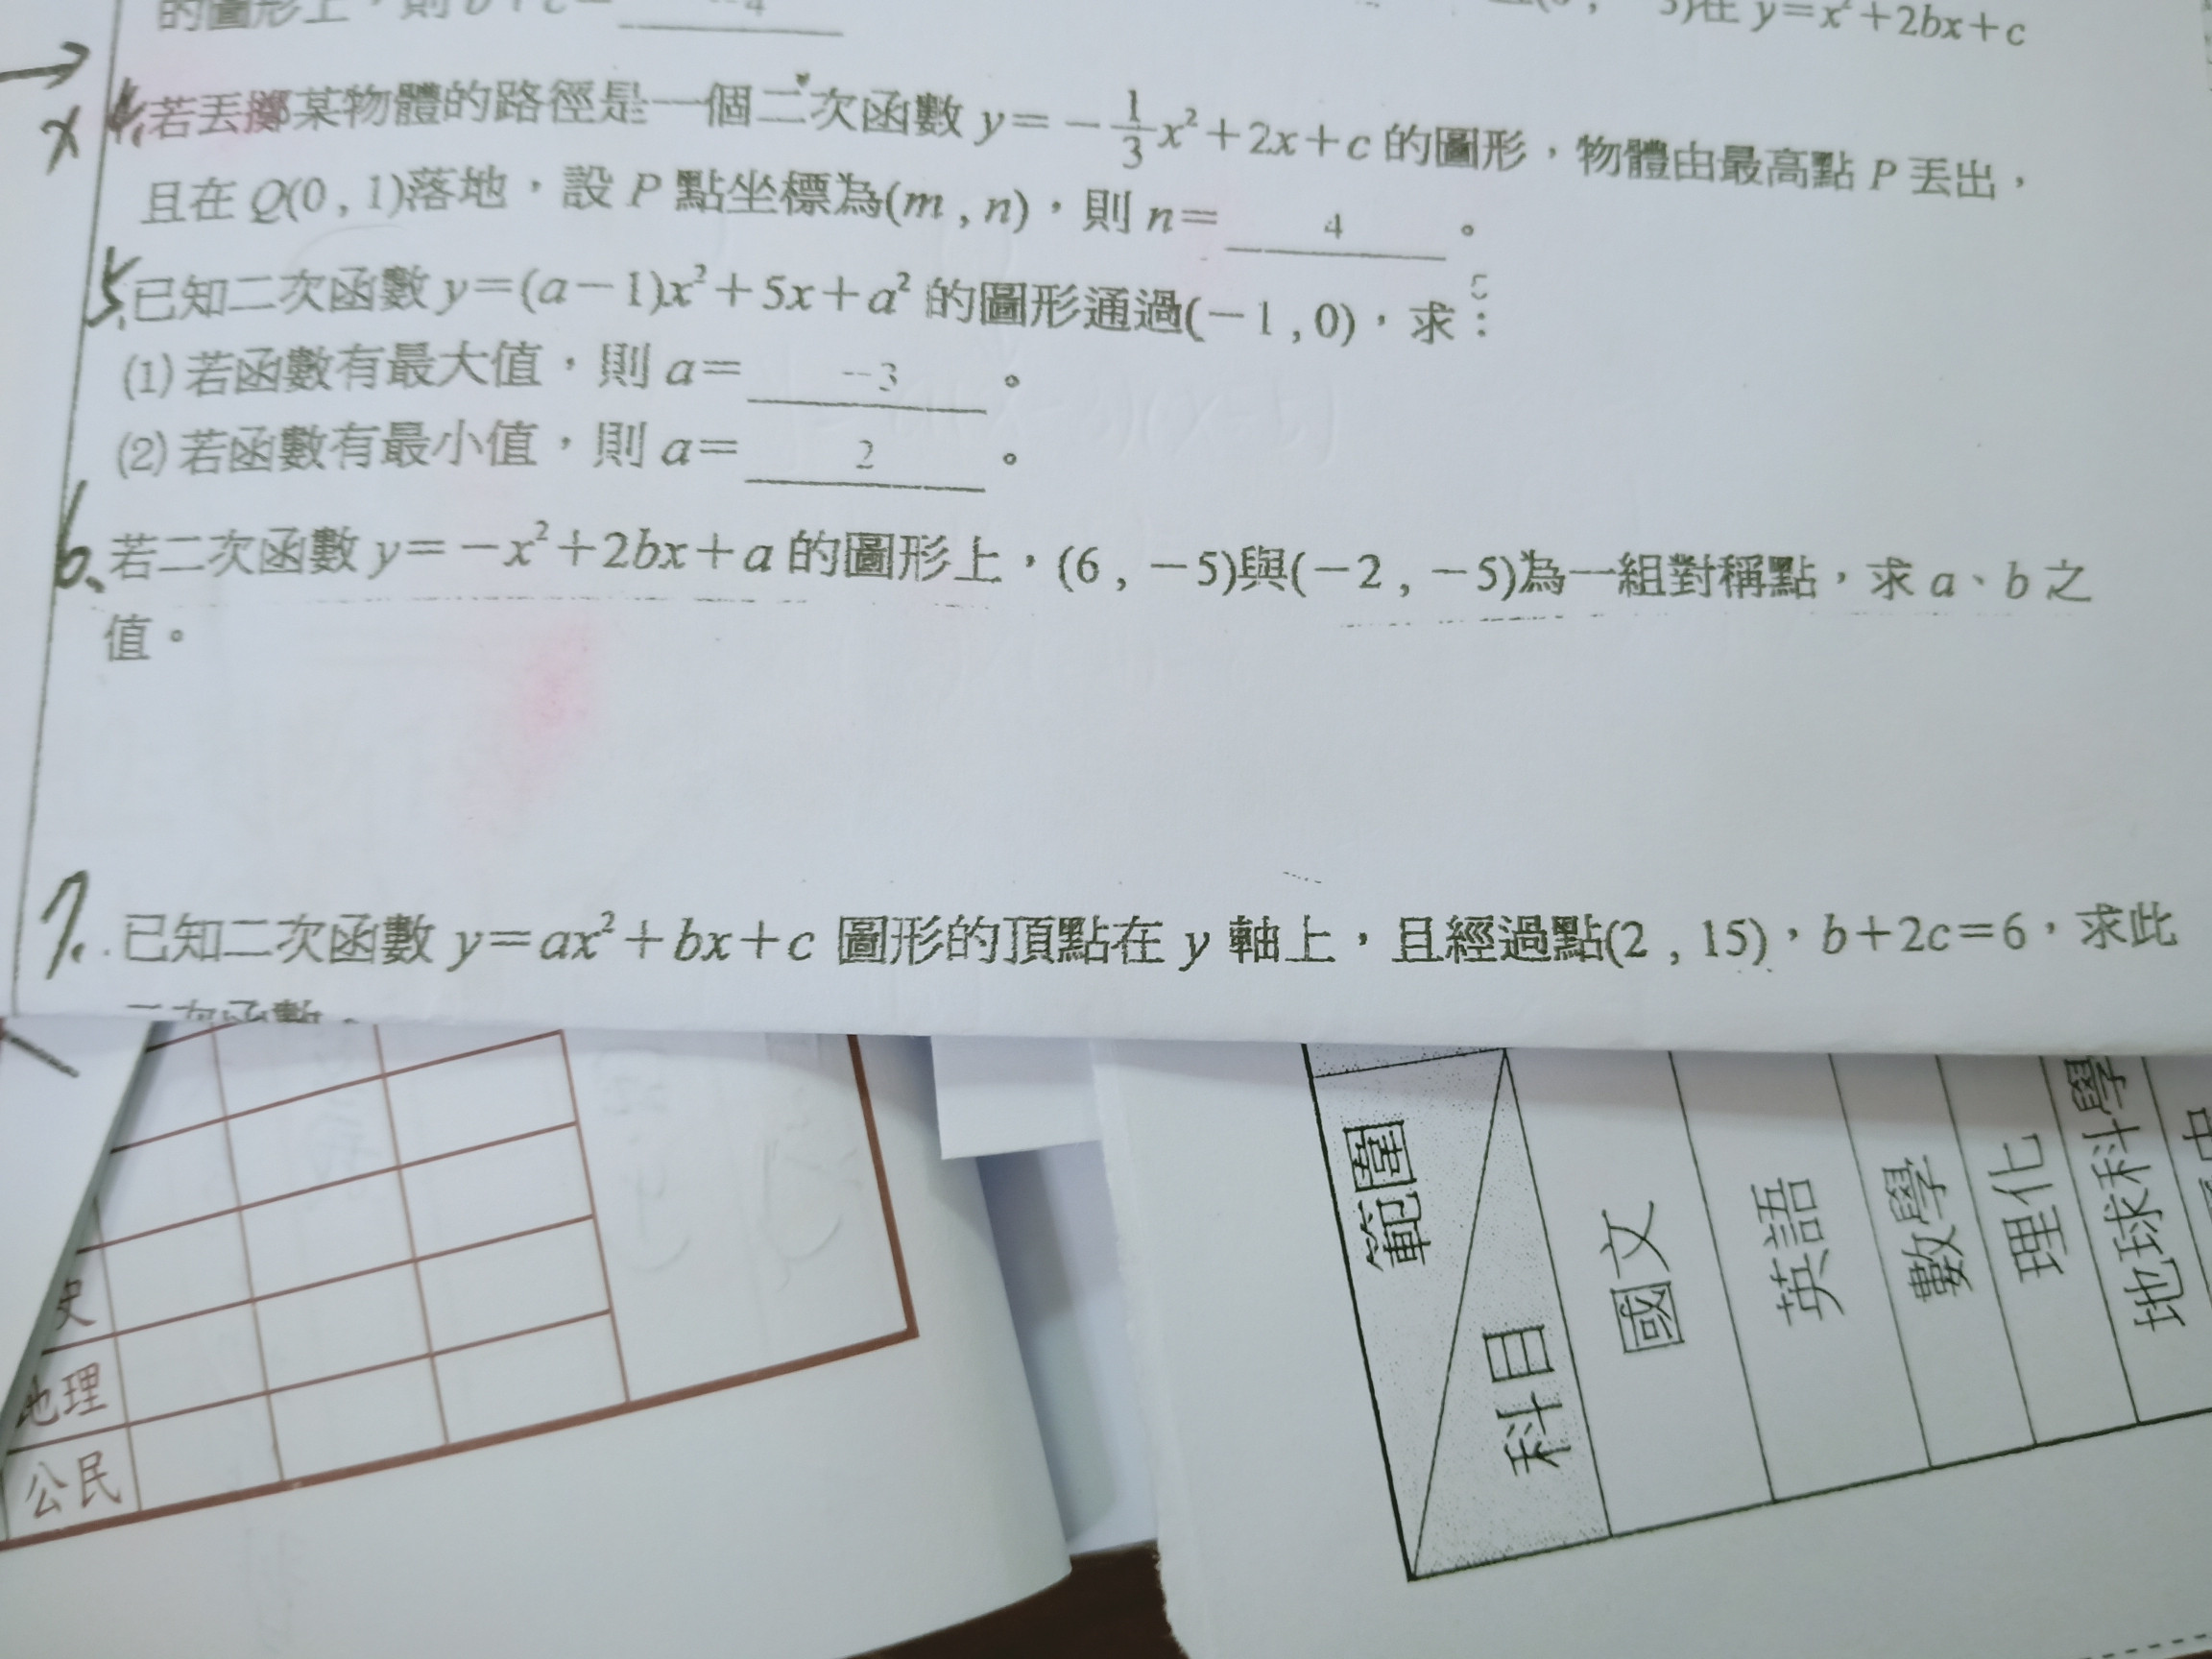 的圖形上，則 b+c= -4
5)在 y=x²+2bx+c
x 4.若丟擲某物體的路徑是一個二次函數 y=-1/3x²+2x+c 的圖形，物體由最高點 P 丟出，
且在 Q(0 , 1)落地，設 P 點坐標為(m , n)，則 n= 4 。
5.已知二次函數 y=(a-1)x²+5x+a² 的圖形通過(-1 , 0)，求：
(1) 若函數有最大值，則 a= -3 。
(2) 若函數有最小值，則 a= 2 。
6.若二次函數 y=-x²+2bx+a 的圖形上，(6 , -5)與(-2 , -5)為一組對稱點，求 a、b 之
值。
7.已知二次函數 y=ax²+bx+c 圖形的頂點在 y 軸上，且經過點(2 , 15)，b+2c=6，求此
二次函數。
史
地理
公民
範圍
科目
國文
英語
數學
理化
地球科學